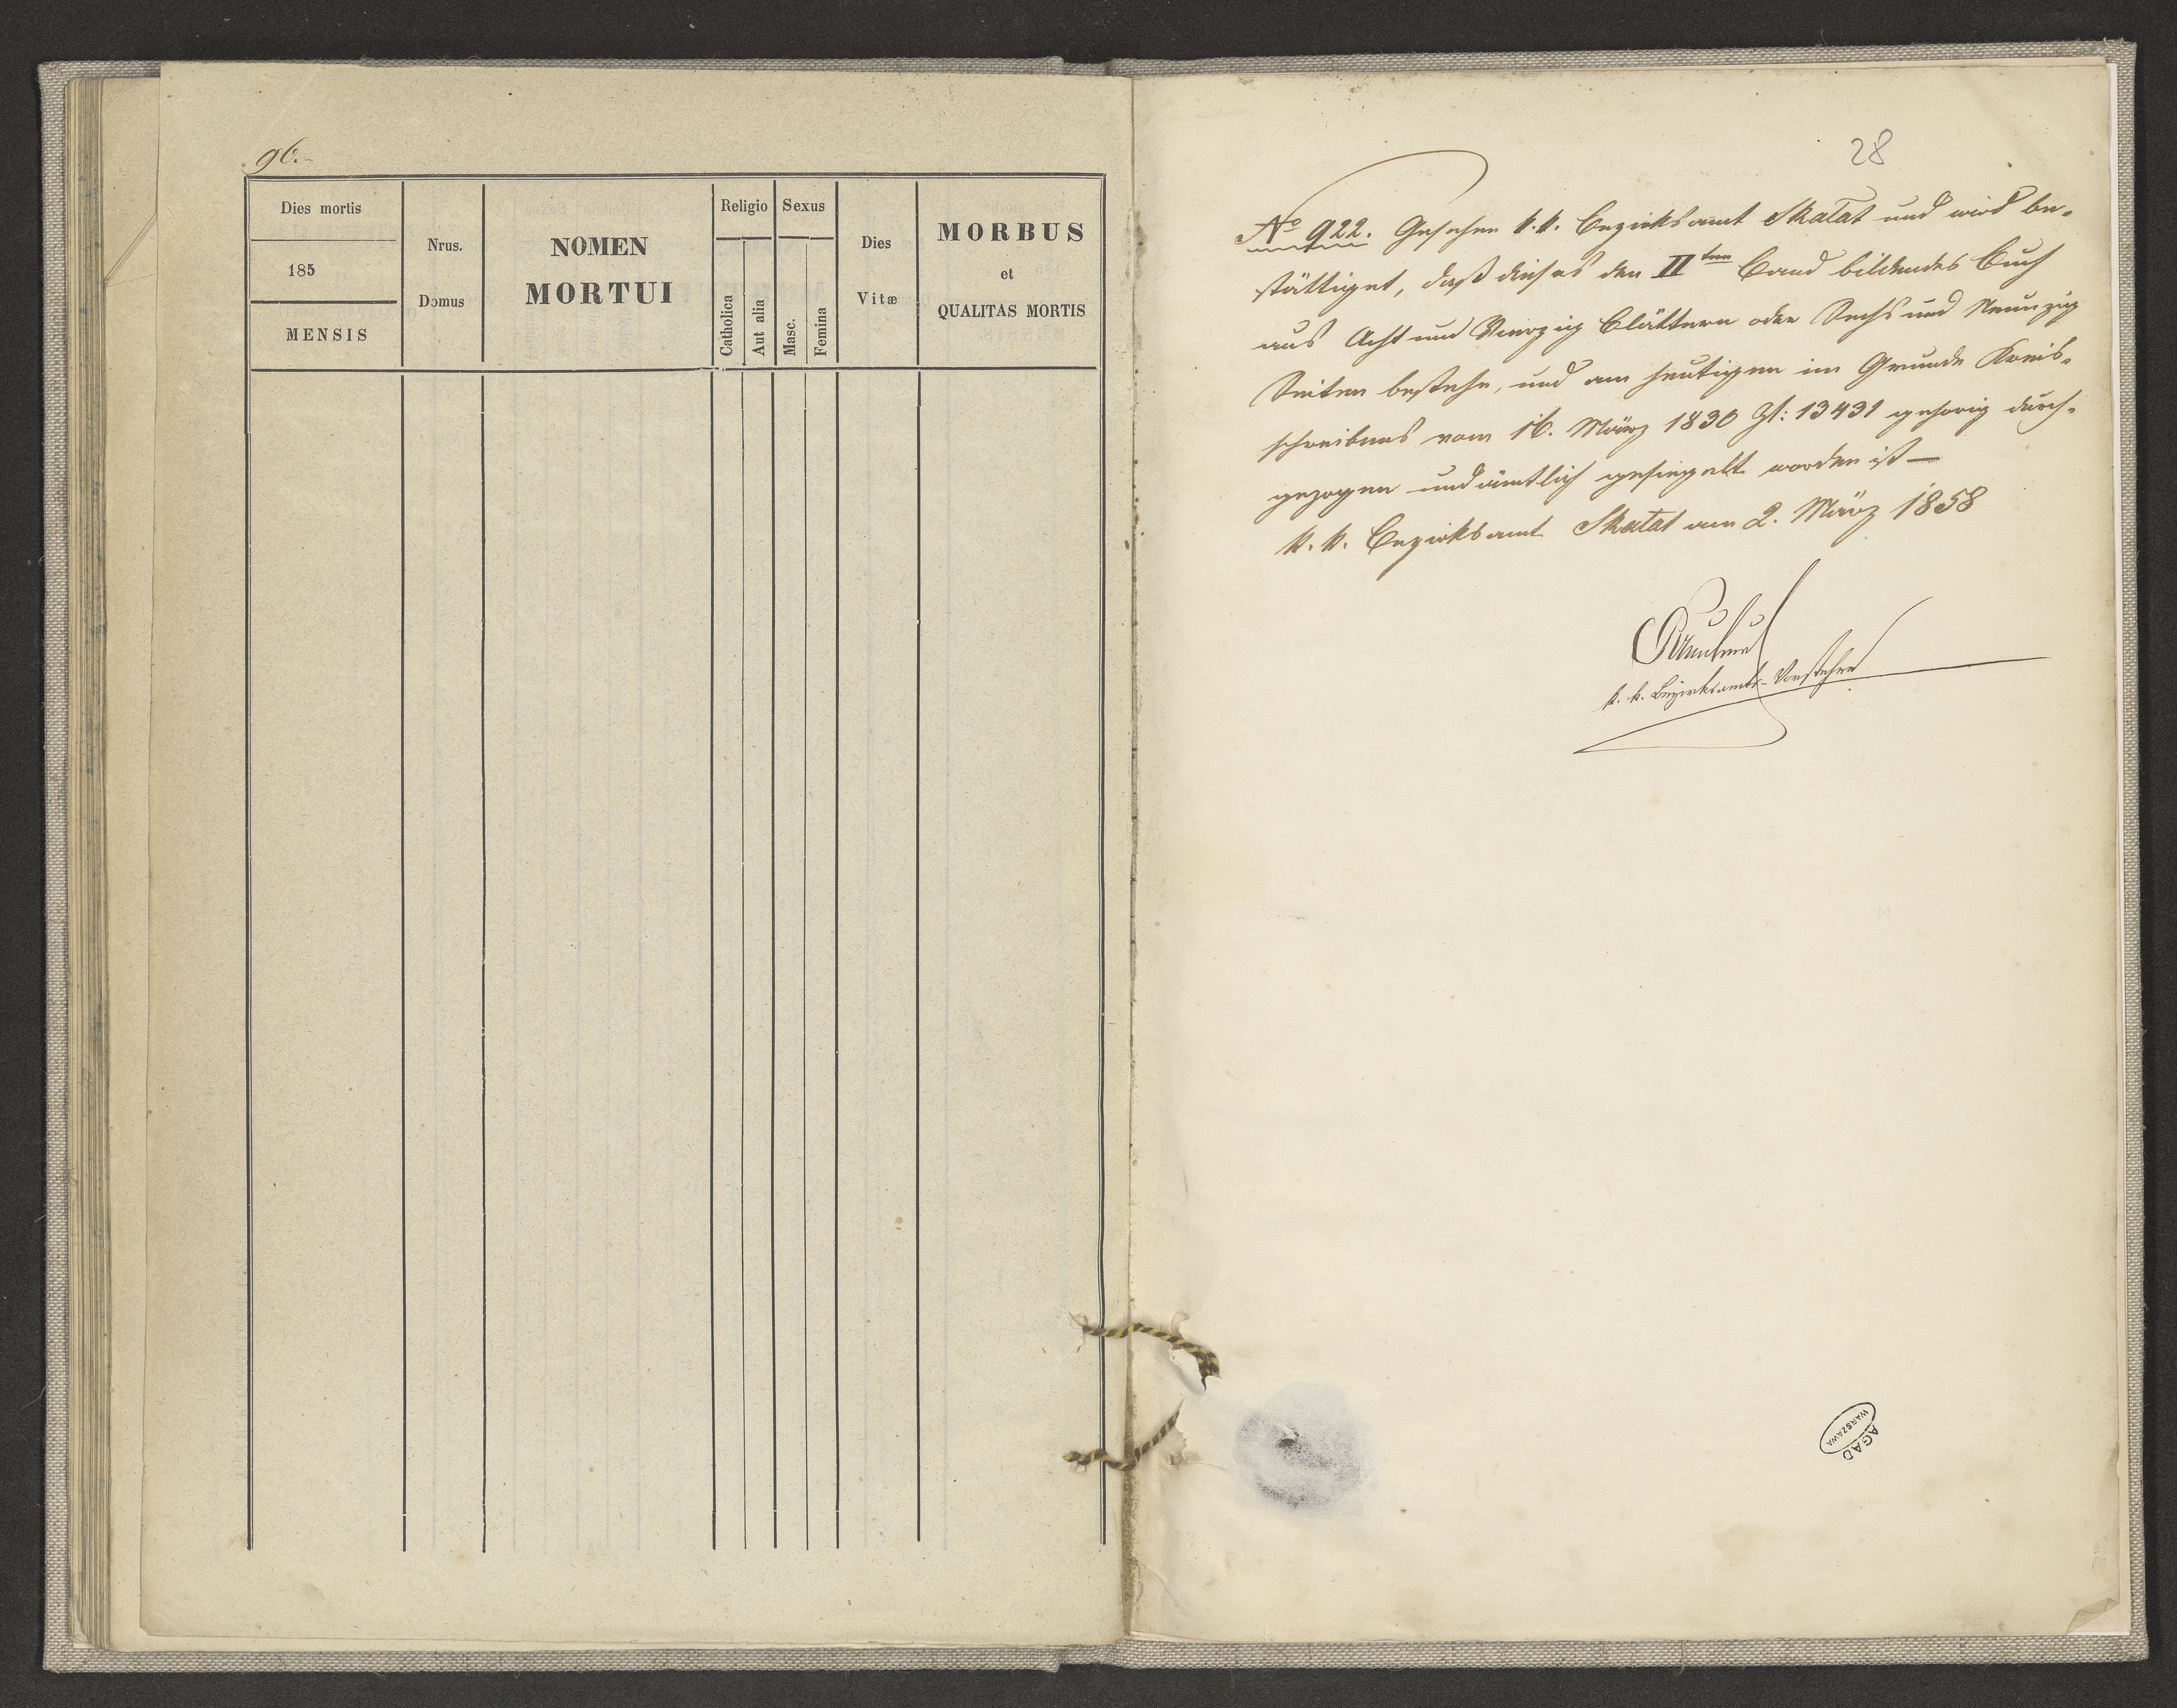 96.
Dies mortis
185
MENSIS
Nrus.
Domus
NOMEN
MORTUI
Religio
Catholica
Aut alia
Sexus
Masc.
Femina
Dies
Vitæ
MORBUS
et
QUALITAS MORTIS
28
No 922. Gesehen k. k. Bezirksamt Skałat und wird be-
stättiget, daß dieses den IIten Band bildendes Buch
aus Acht und Vierzig Blättern oder Sechs und Neunzig
Seiten bestehe, und am heutigen im Grunde Kreis-
schreibens vom 16. März 1830 Zl: 13431 gehörig durch-
gezogen und ämtlich gesiegelt worden ist —
k. k. Bezirksamt Skałat am 2. März 1858
k. k. Bezirksamts-Vorsteher
AGAD
WARSZAWA